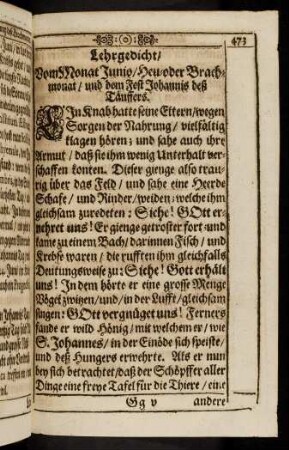 473
Lehrgedicht/
Vom Monat Junio/Heu/oder Brach-
monat/ und dem Fest Johannis deß
Täuffers.
EIn Knab hatte seine Eltern/wegen
Sorgen der Nahrung/ vielfältig
klagen hören; und sahe auch ihre
Armut/ daß sie ihm wenig Unterhalt ver-
schaffen konten. Dieser gienge also trau-
rig über das Feld/ und sahe eine Heerde
Schafe/ und Rinder/weiden; welche ihm
gleichsam zuredeten: Siehe! GOtt er-
nehret uns! Er gienge getroster fort und
kame zu einem Bach/darinnen Fisch/ und
Krebse waren/ die rufften ihm gleichfalls
Deutungsweise zu: Siehe! Gott erhält
uns! In dem hörte er eine grosse Menge
Vögel zwitzen/und/in der Lufft/gleichsam
singen: GOtt vergnüget uns! Ferners
fande er wild Hönig/mit welchem er/wie
S. Johannes/ in der Einöde sich speiste/
und deß Hungers erwehrte. Als er nun
bey sich betrachtet/daß der Schöpffer aller
Dinge eine freye Tafel für die Thiere/ eine
Gg v
andere